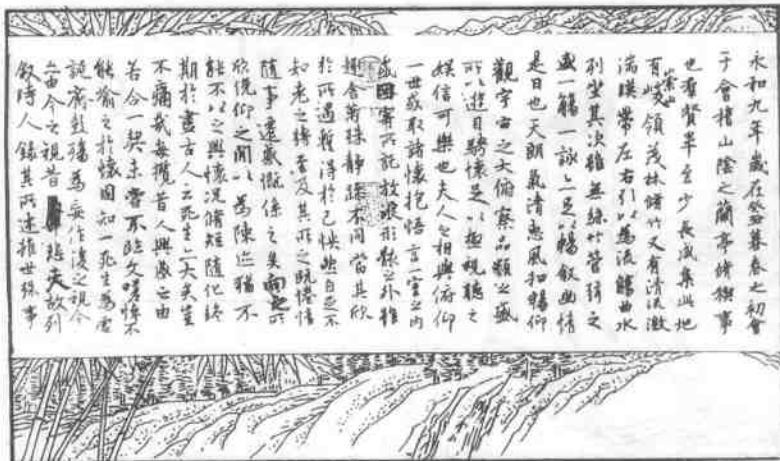 永和九年歲在癸丑暮春之初會
于會稽山陰之蘭亭脩稧事
也群賢畢至少長咸集此地
有崇山峻領茂林脩竹又有清流激
湍暎帶左右引以為流觴曲水
列坐其次雖無絲竹管弦之
盛一觴一詠亦足以暢叙幽情
是日也天朗氣清惠風和暢仰
觀宇宙之大俯察品類之盛
所以遊目騁懷足以極視聽之
娛信可樂也夫人之相與俯仰
一世或取諸懷抱悟言一室之內
或因寄所託放浪形骸之外雖
趣舍萬殊靜躁不同當其欣
於所遇蹔得於己怏然自足不
知老之將至及其所之既惓情
隨事遷感慨係之矣向之所
欣俛仰之間以為陳迹猶不
能不以之興懷況脩短隨化終
期於盡古人云死生亦大矣豈
不痛哉每攬昔人興感之由
若合一契未嘗不臨文嗟悼不
能喻之於懷固知一死生為虛
誕齊彭殤為妄作後之視今
亦由今之視昔悲夫故列
叙時人錄其所述雖世殊事